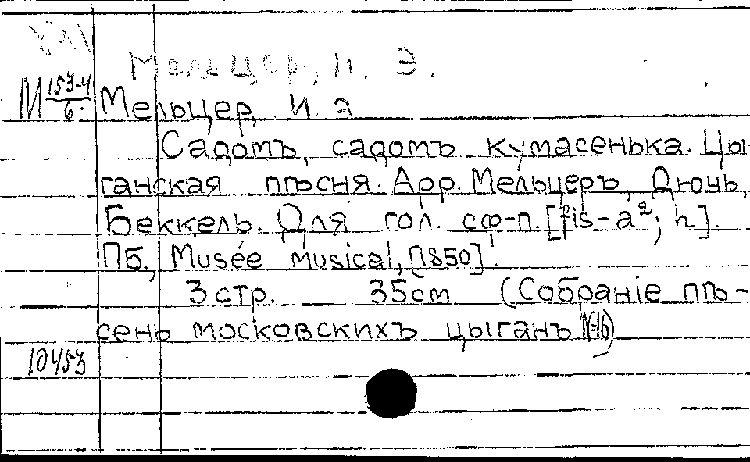 Мельцер, И. Э.
М 153-4/6
Мельцер, И. Э.
Садомъ, садомъ кумасенька. Цы-
ганская пѣсня. Арр. Мельцеръ, Дючь,
Беккель. Для гол. с ф-п. [fis-a²; h].
Пб., Musée musical, [1850].
3 стр. 35 cm (Собраніе пѣ-
сень московскихъ цыганъ)
10453